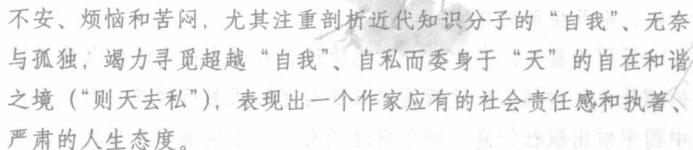 不安、烦恼和苦闷，尤其注重剖析近代知识分子的“自我”、无奈
与孤独，竭力寻觅超越“自我”、自私而委身于“天”的自在和谐
之境（“则天去私”），表现出一个作家应有的社会责任感和执著、
严肃的人生态度。